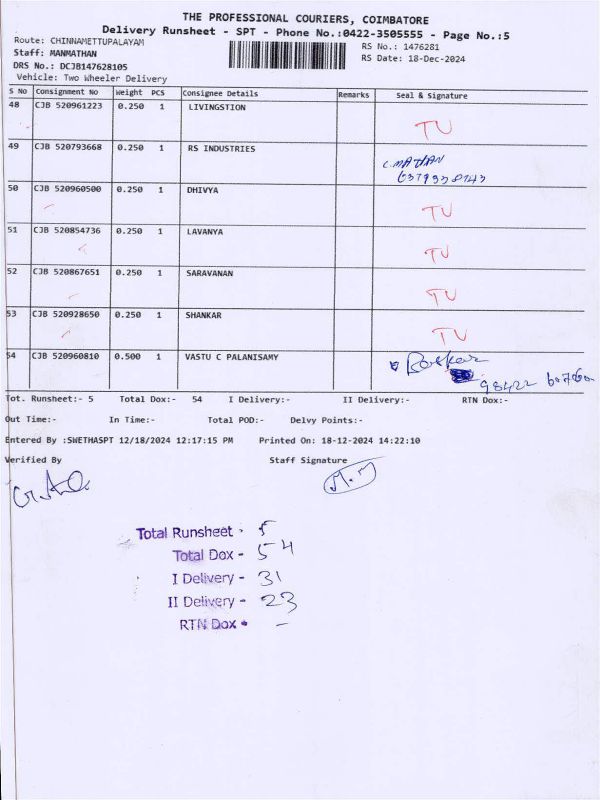 THE PROFESSIONAL COURIERS, COIMBATORE
Delivery Runsheet - SPT - Phone No.:0422-3505555 - Page No.:5
Route: CHINNAMETTUPALAYAM
RS No.: 1476281
Staff: MANMATHAN
RS Date: 18-Dec-2024
DRS No.: DCJB147628105
Vehicle: Two Wheeler Delivery
S No Consignment No Weight PCS Consignee Details Remarks Seal & Signature
48 CJB 520961223 0.250 1 LIVINGSTION TU
49 CJB 520793668 0.250 1 RS INDUSTRIES
C.MATHAN
50 CJB 520960500 0.250 1 DHIVYA TU
51 CJB 520854736 0.250 1 LAVANYA TU
52 CJB 520867651 0.250 1 SARAVANAN TU
53 CJB 520928650 0.250 1 SHANKAR TU
54 CJB 520960810 0.500 1 VASTU C PALANISAMY
98422
Tot. Runsheet:- 5 Total Dox:- 54 I Delivery:- II Delivery:- RTN Dox:-
Out Time:- In Time:- Total POD:- Delvy Points:-
Entered By :SWETHASPT 12/18/2024 12:17:15 PM Printed On: 18-12-2024 14:22:10
Verified By Staff Signature
Total Runsheet - 5
Total Dox - 54
I Delivery - 31
II Delivery - 23
RTN Dox - -